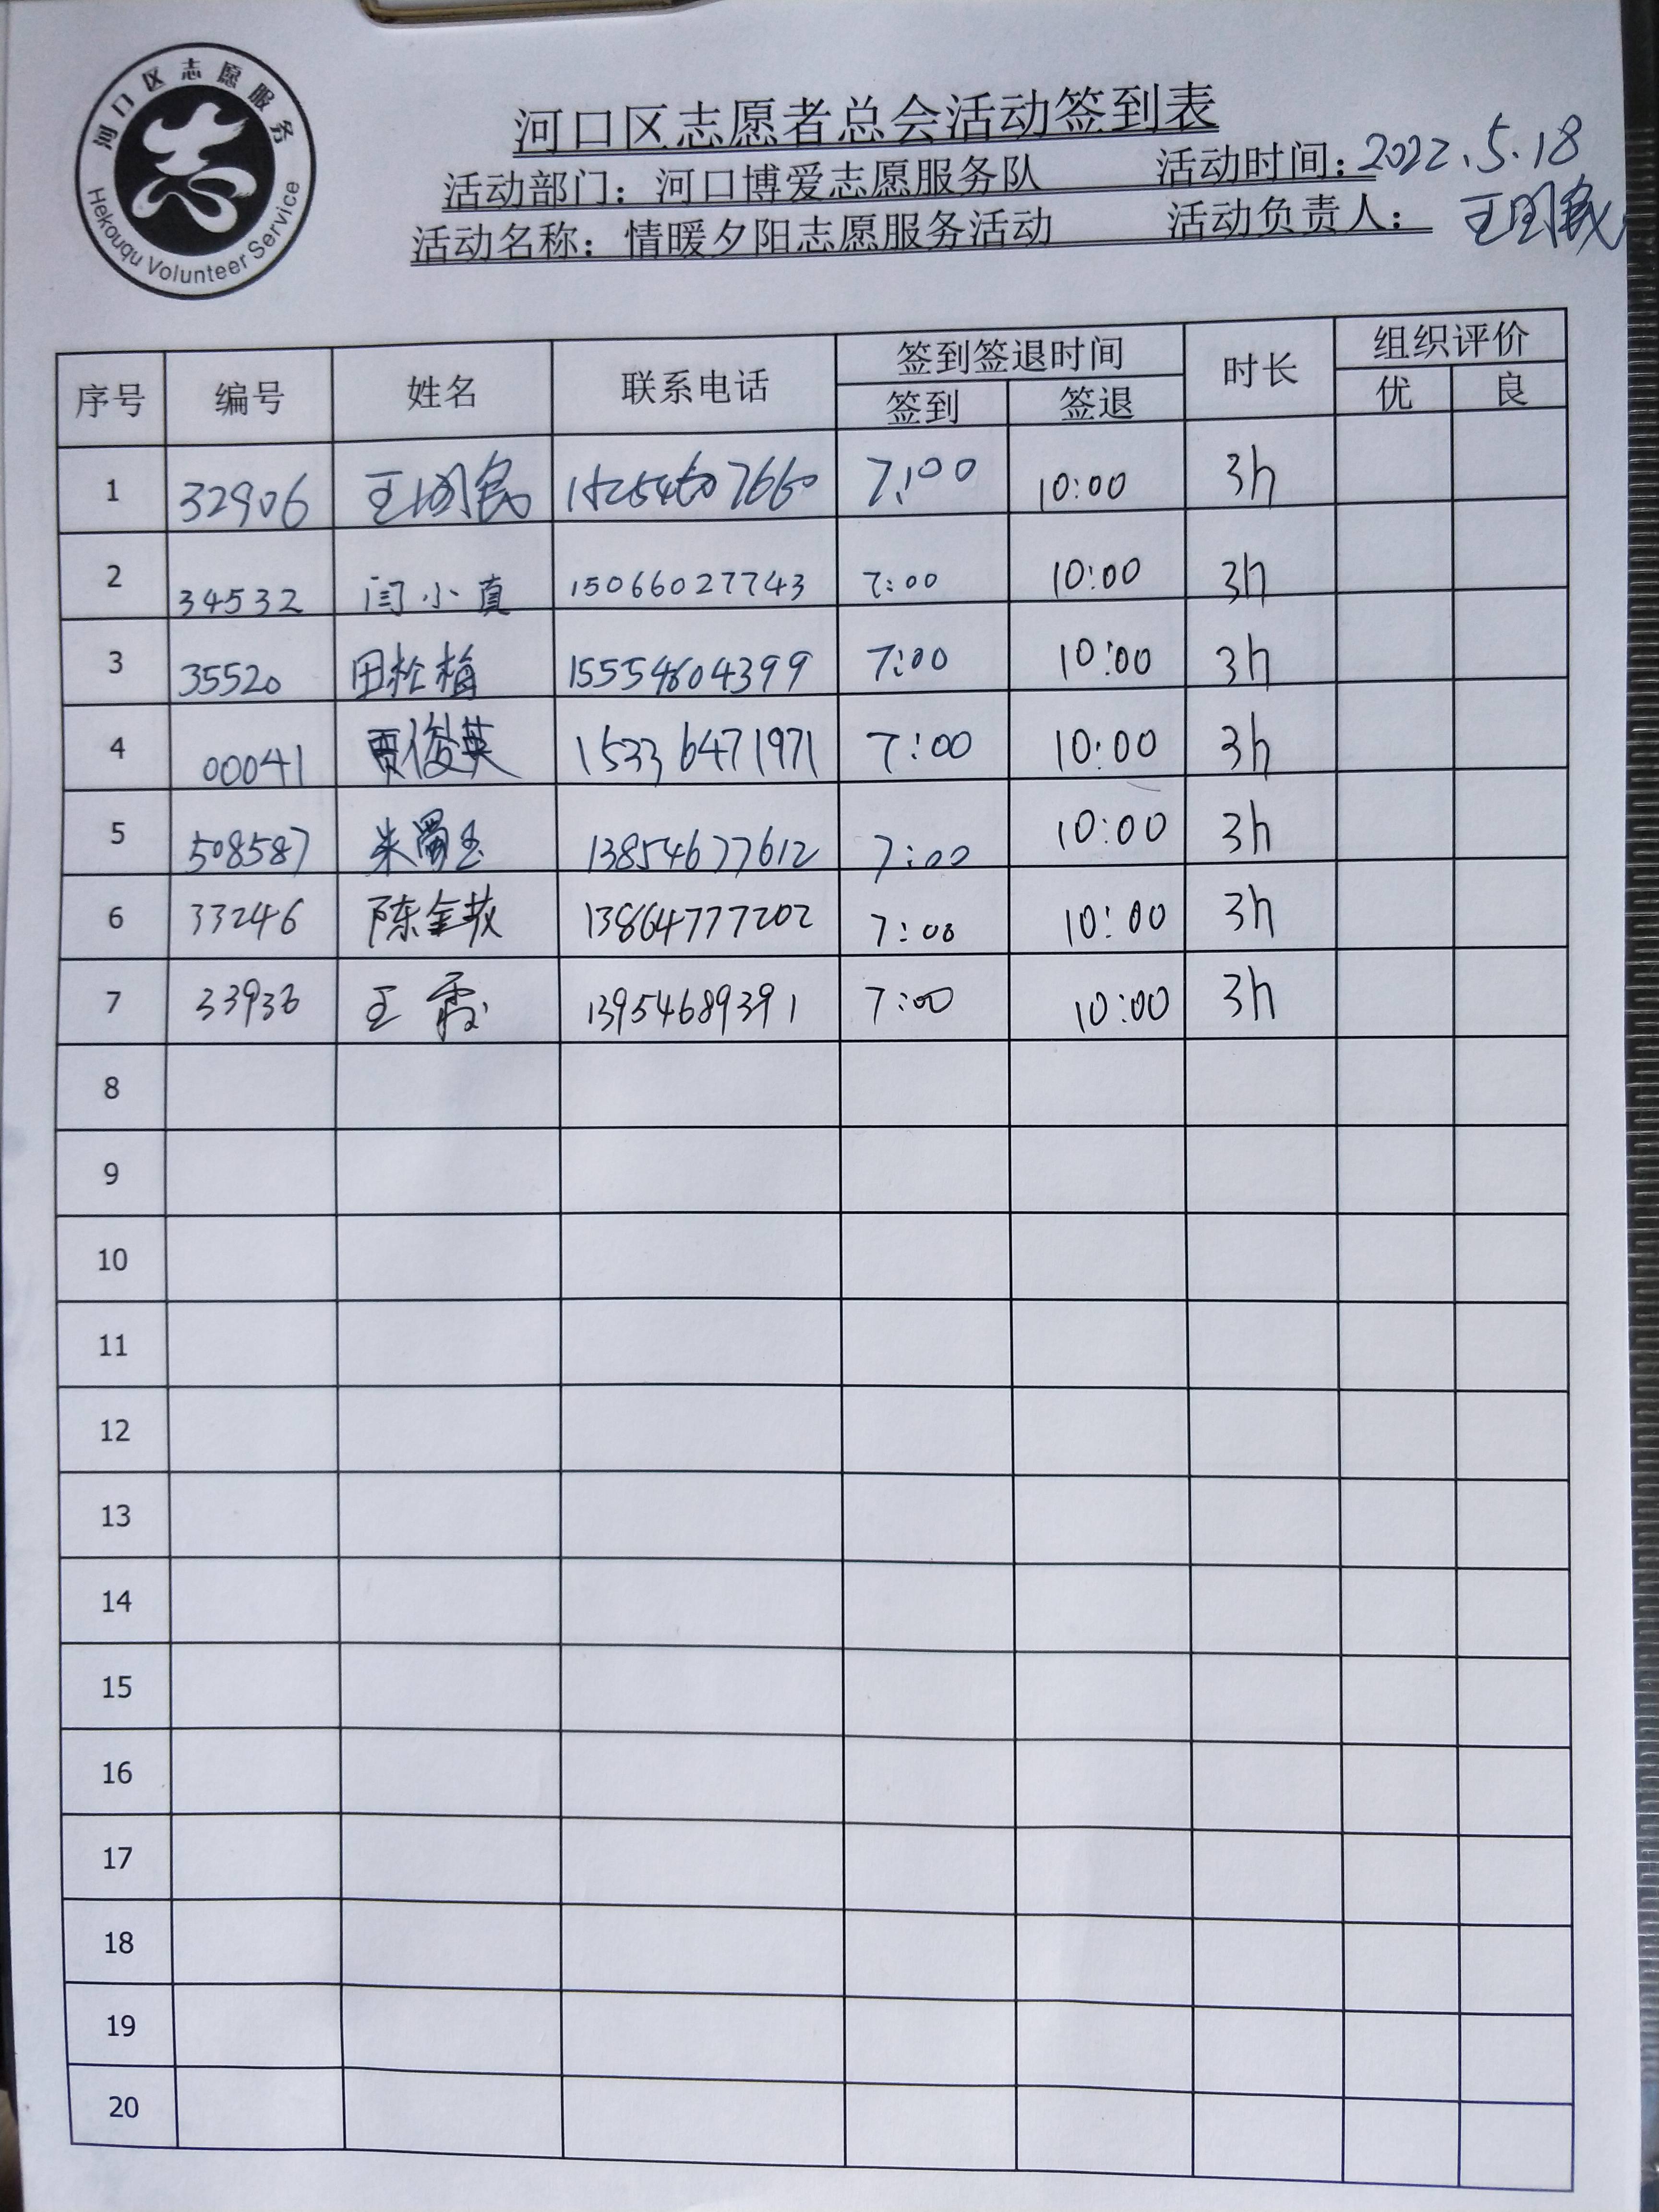 河口区志愿服务
Hekouqu Volunteer Service
河口区志愿者总会活动签到表
活动部门：河口博爱志愿服务队 活动时间：2022.5.18
活动名称：情暖夕阳志愿服务活动 活动负责人：王国民
序号 编号 姓名 联系电话 签到签退时间 时长 组织评价
签到 签退 优 良
1 32906 王国民 7:00 10:00 3h
2 34532 闫小真 15066027743 7:00 10:00 3h
3 35520 田松梅 15554604399 7:00 10:00 3h
4 00041 贾俊英 15336471971 7:00 10:00 3h
5 508587 朱蜀玉 13854677612 7:00 10:00 3h
6 33246 陈金 13864777202 7:00 10:00 3h
7 33936 王霞 13954689391 7:00 10:00 3h
8
9
10
11
12
13
14
15
16
17
18
19
20